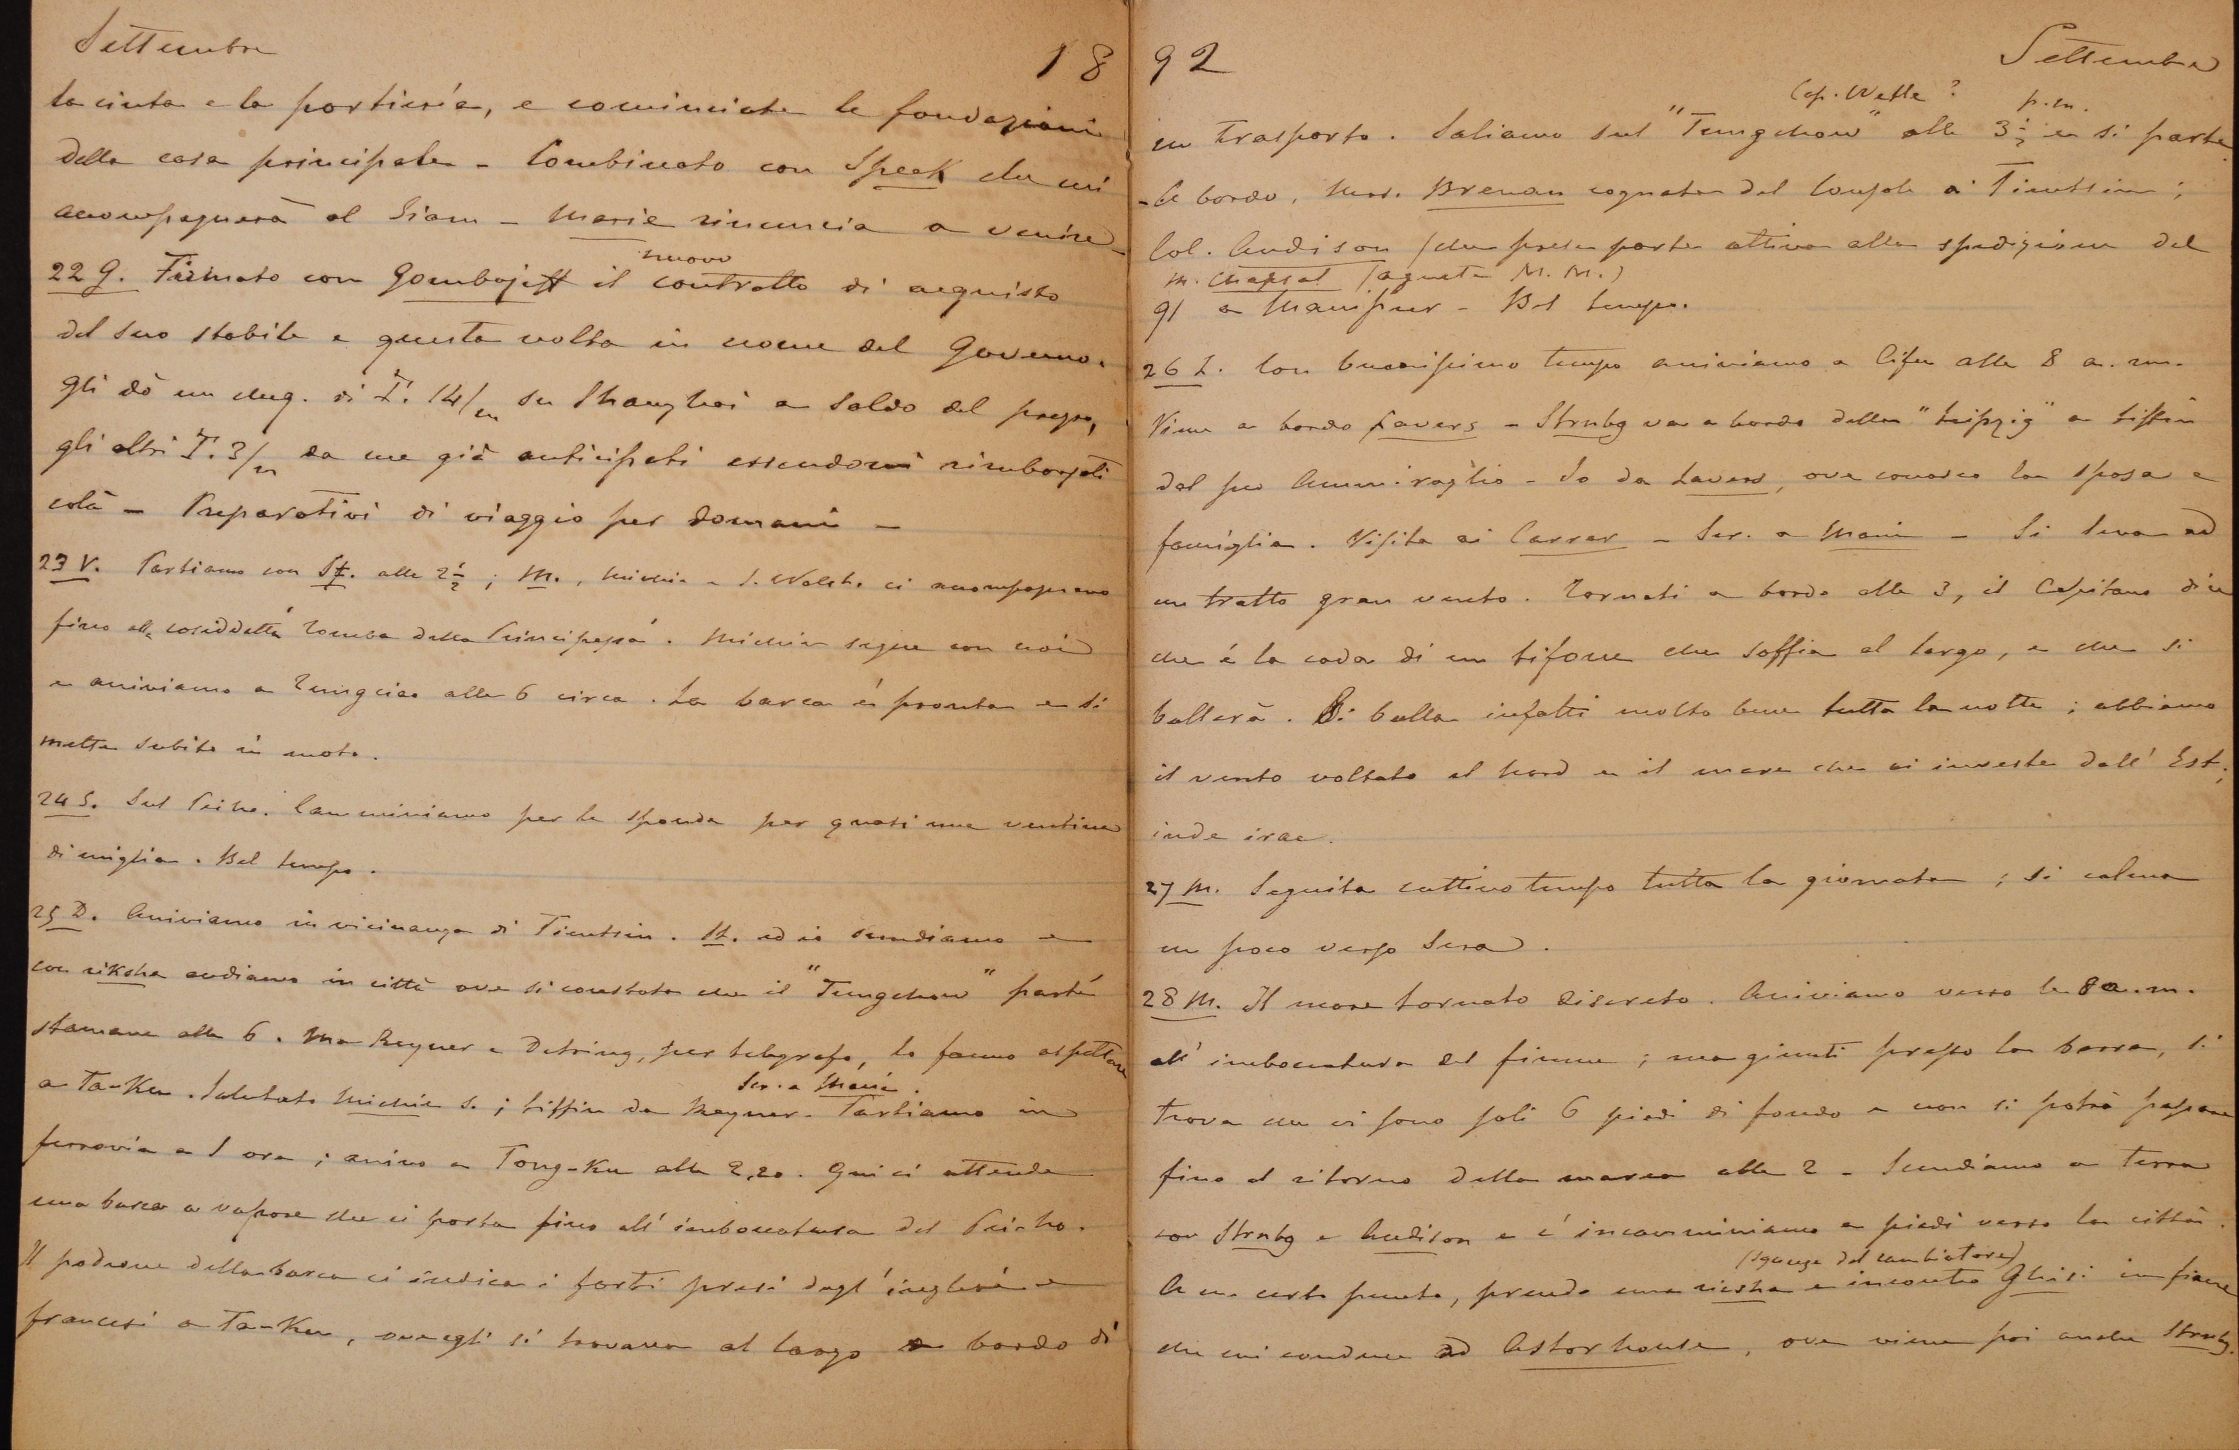 Settembre 18
la cinta e la portieria, e cominciate le fondazioni
della casa principale - Combinato con Speck che mi
accompagnerà al Siam - Marie rinuncia a venire -
22 G. Firmato con Gombojeff il nuovo contratto di acquisto
del suo stabile e questa volta in nome del Governo.
Gli dò un cheq. di T. 14/m su Shanghai a saldo del prezzo,
gli altri T. 3/m da me già anticipati essendomi rimborsati
colà - Preparativi di viaggio per domani -
23 V. Partiamo con St. alle 2½; M., Michie e S. Walsh. ci accompagnano
fino alla cosiddetta Tomba della Principessa. Michie segue con noi
e arriviamo a Tungciao alle 6 circa. La barca è pronta e si
mette subito in moto.
24 S. Sul Peiho. Camminiamo per la sponda per quasi una ventina
di miglia. Bel tempo.
25 D. Arriviamo in vicinanza di Tientsin. St. ed io scendiamo e
con riksha andiamo in città ove si constata che il "Tungchow" partì
stamane alle 6. Ma Reyner e Detring, per telegrafo, lo fanno aspettare
a Ta-Ku. Salutato Michie s.; tiffin da Reyner - Scr. a Marie. Partiamo in
ferrovia a 1 ora; arrivo a Tong-Ku alle 2,20. Qui ci attende
una barca a vapore che ci porta fino all'imboccatura del Peiho.
Il padrone della barca ci indica i forti presi dagl'inglesi e
francesi a Ta-Ku, ov'egli si trovava al largo a bordo di
92 Settembre
un trasporto. Saliamo sul "Tungchow" Cap. Wette? alle 3½ p.m. e si parte.
- A bordo, Mrs. Brenan cognata del Console a Tientsin;
Col. Audison (che prese parte attiva alla spedizione del
M. Chapsal (agente M. M.)
91 a Manipur - Bel tempo.
26 L. Con buonissimo tempo arriviamo a Cifu alle 8 a.m.
Viene a bordo Lavers - Strnbg va a bordo della "Leipzig" a tiffin
dal suo Ammiraglio - Io da Lavers, ove conosco la sposa e
famiglia. Visita ai Carrar - Scr. a Marie - Si leva ad
un tratto gran vento. Tornati a bordo alle 3, il Capitano dice
che è la coda di un tifone che soffia al largo, e che si
ballerà. Si balla infatti molto bene tutta la notte; abbiamo
il vento voltato al Nord e il mare che ci investe dall'Est;
inde irae.
27 M. Seguita cattivo tempo tutta la giornata; si calma
un poco verso sera.
28 M. Il mare tornato discreto. Arriviamo verso le 8 a.m.
all'imboccatura del fiume; ma giunti presso la barra, si
trova che vi sono soli 6 piedi di fondo e non si potrà passare
fino al ritorno della marea alle 2 - Scendiamo a terra
con Strnbg e Audison e c'incamminiamo a piedi verso la città.
A un certo punto, prendo una ricsha (sguenza del cambiatore) e incontro Ghisi in fiacre
che mi conduce ad Astorhouse, ove viene poi anche Strnbg.